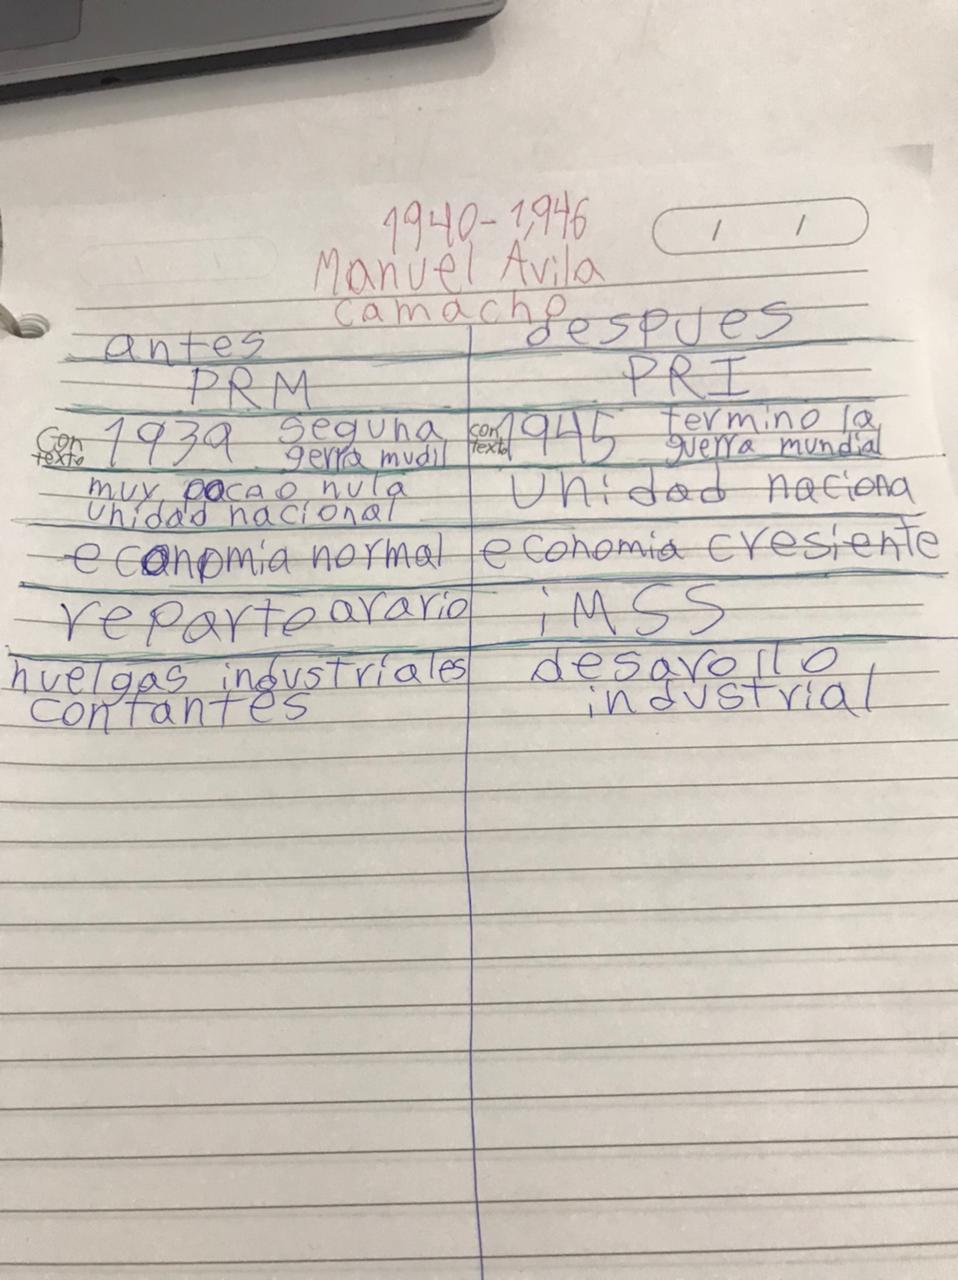 1940-1,946
Manuel Avila
camacho
antes
despues
PRM
PRI
Con texto 1939 seguna gerra mudil
con texto 1945 termino la guerra mundial
muy pocao nula
unidad nacional
Unidad naciona
economia normal
economia cresiente
reparto arario
iMSS
huelgas industriales
contantes
desarollo
industrial